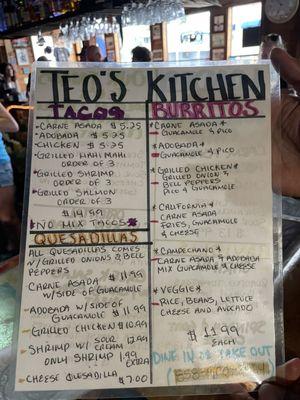 TEO'S KITCHEN
TACOS
- CARNE ASADA $5.25
- ADOBADA $5.25
- CHICKEN $5.25
- GRILLED MAHI MAHI
ORDER OF 3
- GRILLED SHRIMP
ORDER OF 3
- GRILLED SALMON
ORDER OF 3
$14.99
NO MIX TACOS
QUESADILLAS
ALL QUESADILLAS COMES
W/GRILLED ONIONS & BELL
PEPPERS
CARNE ASADA $11.99
W/SIDE OF GUACAMOLE
ADOBADA W/SIDE OF
GUACAMOLE $11.99
- GRILLED CHICKEN $10.99
SHRIMP W/ SOUR CREAM 12.99
ONLY SHRIMP 1.99 EXTRA
- CHEESE QUESADILLA $7.00
BURRITOS
* CARNE ASADA *
GUACAMOLE & PICO
* ADOBADA *
GUACAMOLE & PICO
* GRILLED CHICKEN *
GRILLED ONION &
BELL PEPPERS
PICO & GUACAMOLE
* CALIFORNIA *
CARNE ASADA
FRIES, GUACAMOLE
& CHEESE
* CAMPECHANO *
CARNE ASADA & ADOBADA
MIX GUACAMOLE & CHEESE
* VEGGIE *
RICE, BEANS, LETTUCE
CHEESE AND AVOCADO
$11.99
EACH
DINE IN OR TAKE OUT